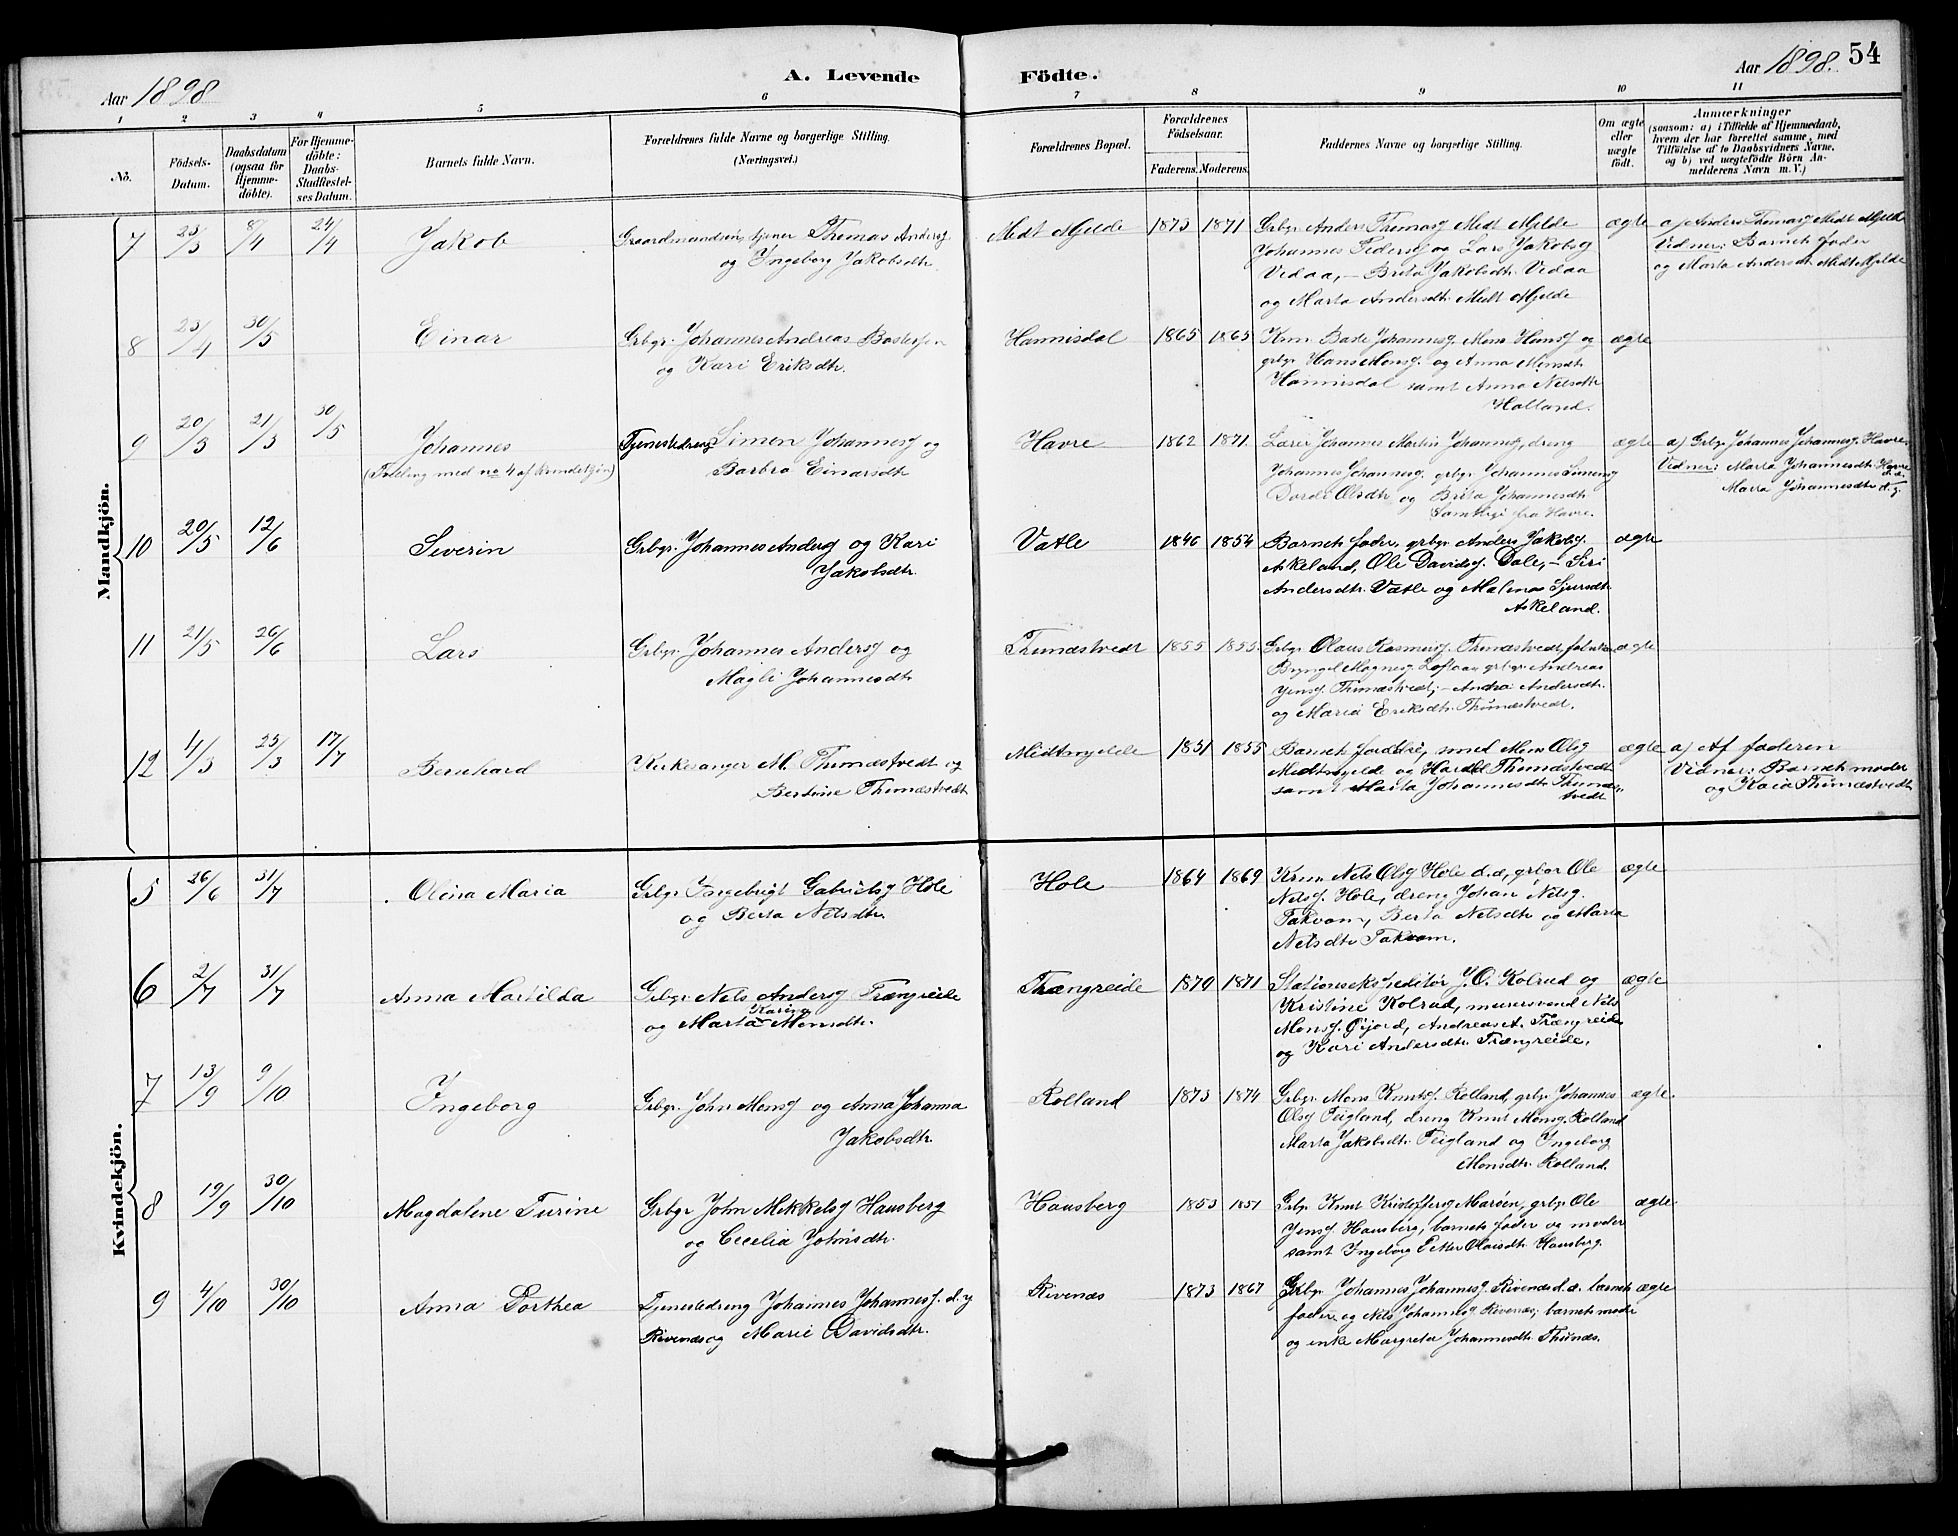 Aar 1898
A. Levende Födte.
Aar 1898.
54
1 2 3 4 5 6 7 8 9 10 11
No.
Födsels-Datum.
Daabsdatum (ogsaa for Hjemmedöbte).
For Hjemmedöbte: Daabs-Stadfæstelses Datum.
Barnets fulde Navn.
Forældrenes fulde Navne og borgerlige Stilling. (Næringsvei.)
Forældrenes Bopæl.
Forældrenes Födselsaar.
Faderens. Moderens.
Faddernes Navne og borgerlige Stilling.
Om ægte eller uægte födt.
Anmærkninger (saasom: a) i Tilfælde af Hjemmedaab, hvem der har forrettet samme, med Tilföielse af to Daabsvidners Navne, og b) ved uægtefödte Börn Anmelderens Navn m. V.)
Mandkjön.
7 23/3 8/4 24/4 Jakob
Gaardmandssön, tjener Thomas Andersj
og Ingeborg Jakobsdtr
Midt Mjelde 1873 1871
Grbgr Anders Thomasj Midt Mjelde
Johannes Pedersj og Lars Jakobsj
Vedaa, - Brita Jakobsdtr Vedaa
og Marta Andersdtr Midt Mjelde
ægte
a) Anders Thomasj Midt Mjelde
Vidner: Barnets fader
og Marta Andersdtr Midt Mjelde
8 23/4 30/5 Einar
Grbgr. Johannes Andreas Bastesen
og Kari Eriksdtr.
Hannisdal 1865 1865
Knm Baste Johannesj, Mons Hansj og
grbgr Hans Monsj. og Anna Monsdtr
Hannisdal samt Anna Nelsdtr
Holland.
ægte
9 20/3 21/3 30/5 Johannes
(Tvilling med no 4 af kvindekjön)
Tjenestedreng Simon Johannesj og
Barbro Einarsdtr
Havre 1862 1871
Lærer Johannes Martin Johannesj, dreng
Johannes Johannesj, grbgr Johannes Simonsj
Dorde Olsdtr og Brita Johannesdtr
Samtlige fra Havre.
ægte
a) Grbgr Johannes Johannesj. Havre
Vidner: Marta Johannesdtr Havre d.æ.
Marta Johannesdtr d.y.
10 20/5 12/6 Severin
Grbgr. Johannes Andersj og Kari
Jakobsdtr.
Vatle 1846 1854
Barnets fader, grbgr Anders Jakobsj.
Askeland, Ole Davidsj. Dale, - Siri
Andersdtr. Vatle og Malenas Sjursdtr
Askeland.
ægte
11 21/5 26/6 Lars
Grbgr. Johannes Andersj og
Magli Johannesdtr
Thunæstvedt 1855 1855
Grbgr Olaus Rasmusj. Thunæstvedt,
Bryngel Magnesj Loftaas, grbgr Andreas
Jensj. Thunæstvedt, - Andrea Andersdtr.
og Maria Eriksdtr. Thunæstvedt.
ægte
12 4/3 25/3 17/7 Bernhard
Kirkesanger M. Thunæstvedt og
Bertine Thunæstvedt
Midtmjelde 1851 1855
Barnets forældre, smed Mons Olsj
Midtmjelde og Harald Thunæstvedt
samt Marta Johannesdtr Thunæs-
tvedt
ægte
a) Af faderen
Vidner: Barnets moder
og Kaia Thunæstvedt
Kvindekjön.
5 26/6 31/7 Olena Maria
Grbgr Ingebrigt Gabrielsj Hole
og Berta Nelsdtr
Hole 1864 1869
Krm Nels Olsj Hole d.æ, grbgr Ole
Nelsj. Hole, dreng Johan Nelsj.
Takvam, Berta Nelsdtr og Marta
Nelsdtr Takvam.
ægte
6 2/7 31/7 Anna Martilda
Grbgr. Nels Andersj Trængreide
og Marta Karina Monsdtr.
Trængreide 1870 1871
Stationsekspeditør J.O. Kolrud og
Kristine Kolrud, murersvend Nils
Monsj. Øijord, Andreas A. Trængreide
og Kari Andersdtr Trængreide.
ægte
7 13/9 9/10 Ingeborg
Grbgr. John Monsj og Anna Johanna
Jakobsdtr.
Rolland 1873 1874
Grbgr. Mons Knutsj. Rolland, grbgr Johannes
Olsj Teigland, dreng Knut Monsj. Rolland
Marta Jakobsdtr. Teigland og Ingeborg
Monsdtr. Rolland.
ægte.
8 19/9 30/10 Magdalene Turine
Grbgr John Mikkelsj Hausberg
og Cecelia Johnsdtr.
Hausberg 1853 1851
Grbgr. Knut Kristoffersj Marøen, grbgr Ole
Jensj. Hausberg, barnets fader og moder
samt Ingeborg Petter Olaisdtr Hausberg.
ægte
9 4/10 30/10 Anna Dorthea
Tjenestedreng Johannes Johannesj. d.y
Rivenæs og Marie Davidsdtr.
Rivenæs 1873 1867
Grbgr Johannes Johannesj Rivenæs d.æ. barnets
fader og Nels Johannesj Rivenæs, barnets moder
og enke Margreta Johannesdtr Thunæs.
ægte